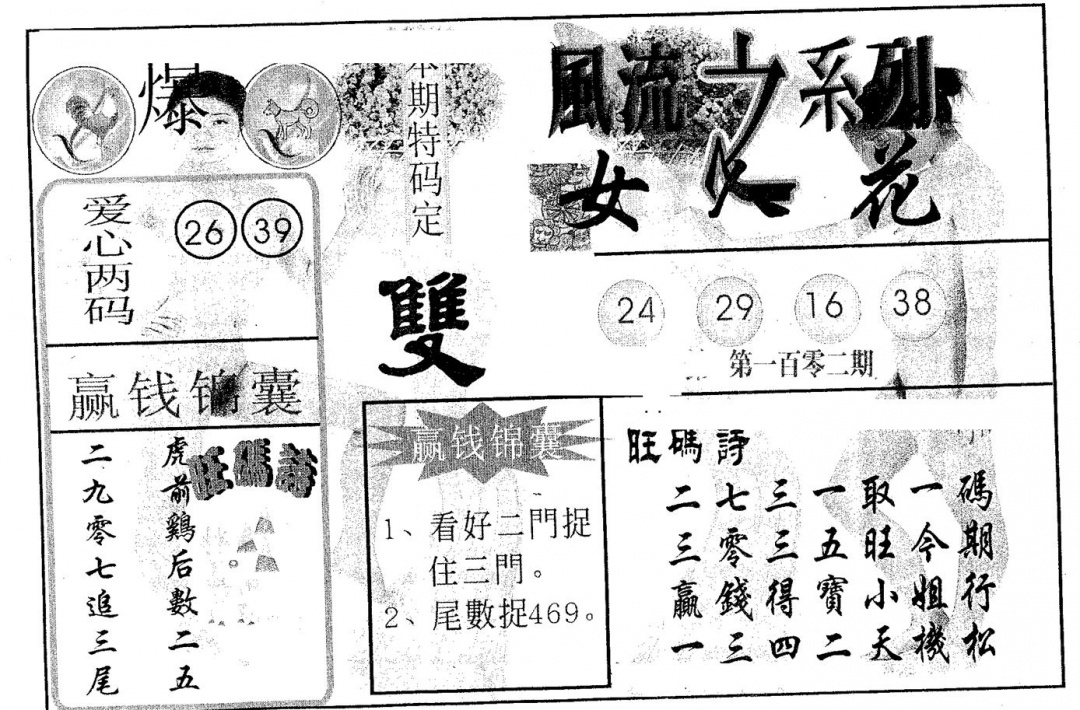 爆
本期特码定
雙
風流之系列
女人花
爱心两码
26 39
赢钱锦囊
虎前鷄后數二五
二九零七追三尾
旺碼詩
24 29 16 38
第一百零二期
赢钱锦囊
1、看好二門捉
住三門。
2、尾數捉469。
旺碼詩
二七三一取一碼
三零三五旺今期
贏錢得寶小姐行
一三四二天機松